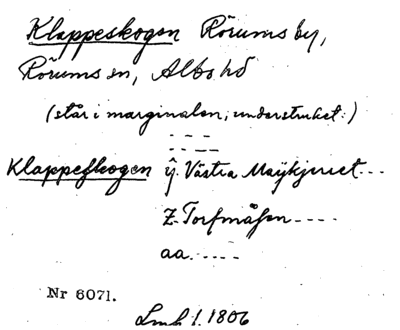 Klappeskogen Rörums by,
Rörums sn, Albo hd
(står i marginalen, understruket:)
Klappeskogen ÿ. Västra Maÿkjerret...
Z. Torfmåsen ----
aa. ----
Nr 6071.
Lmh 1. 1806